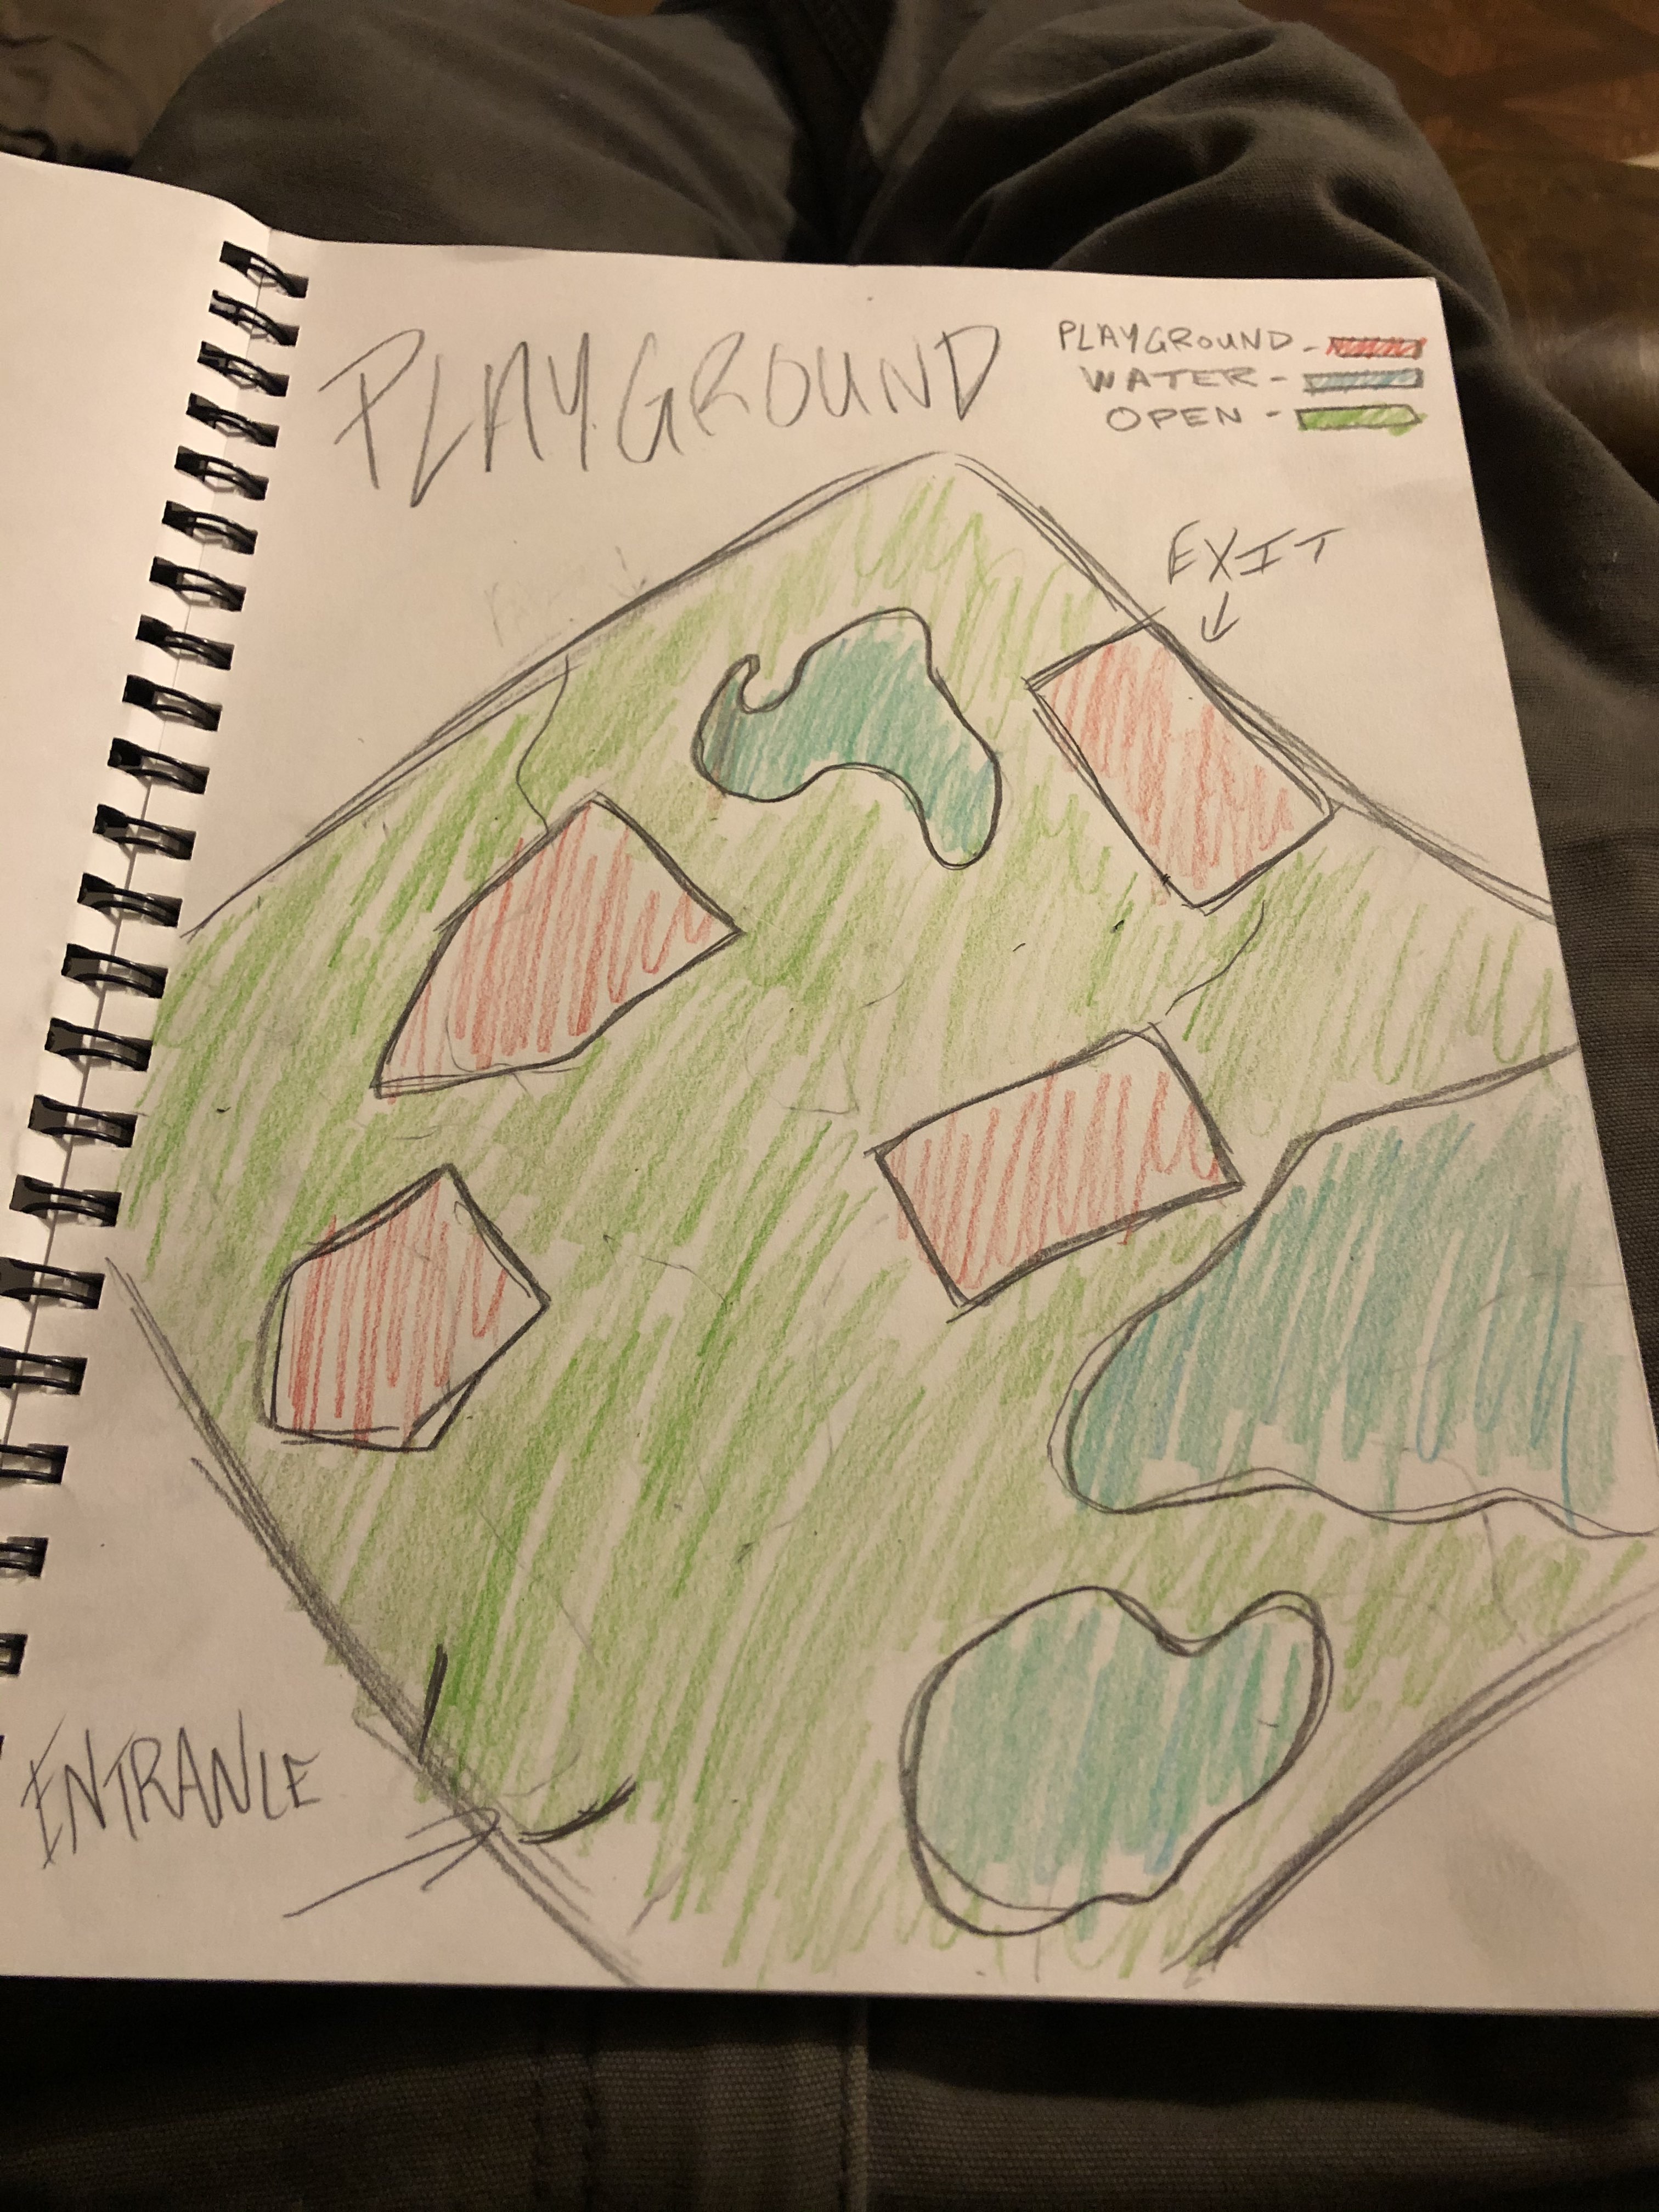 PLAYGROUND
PLAYGROUND -
WATER -
OPEN -
EXIT
ENTRANCE